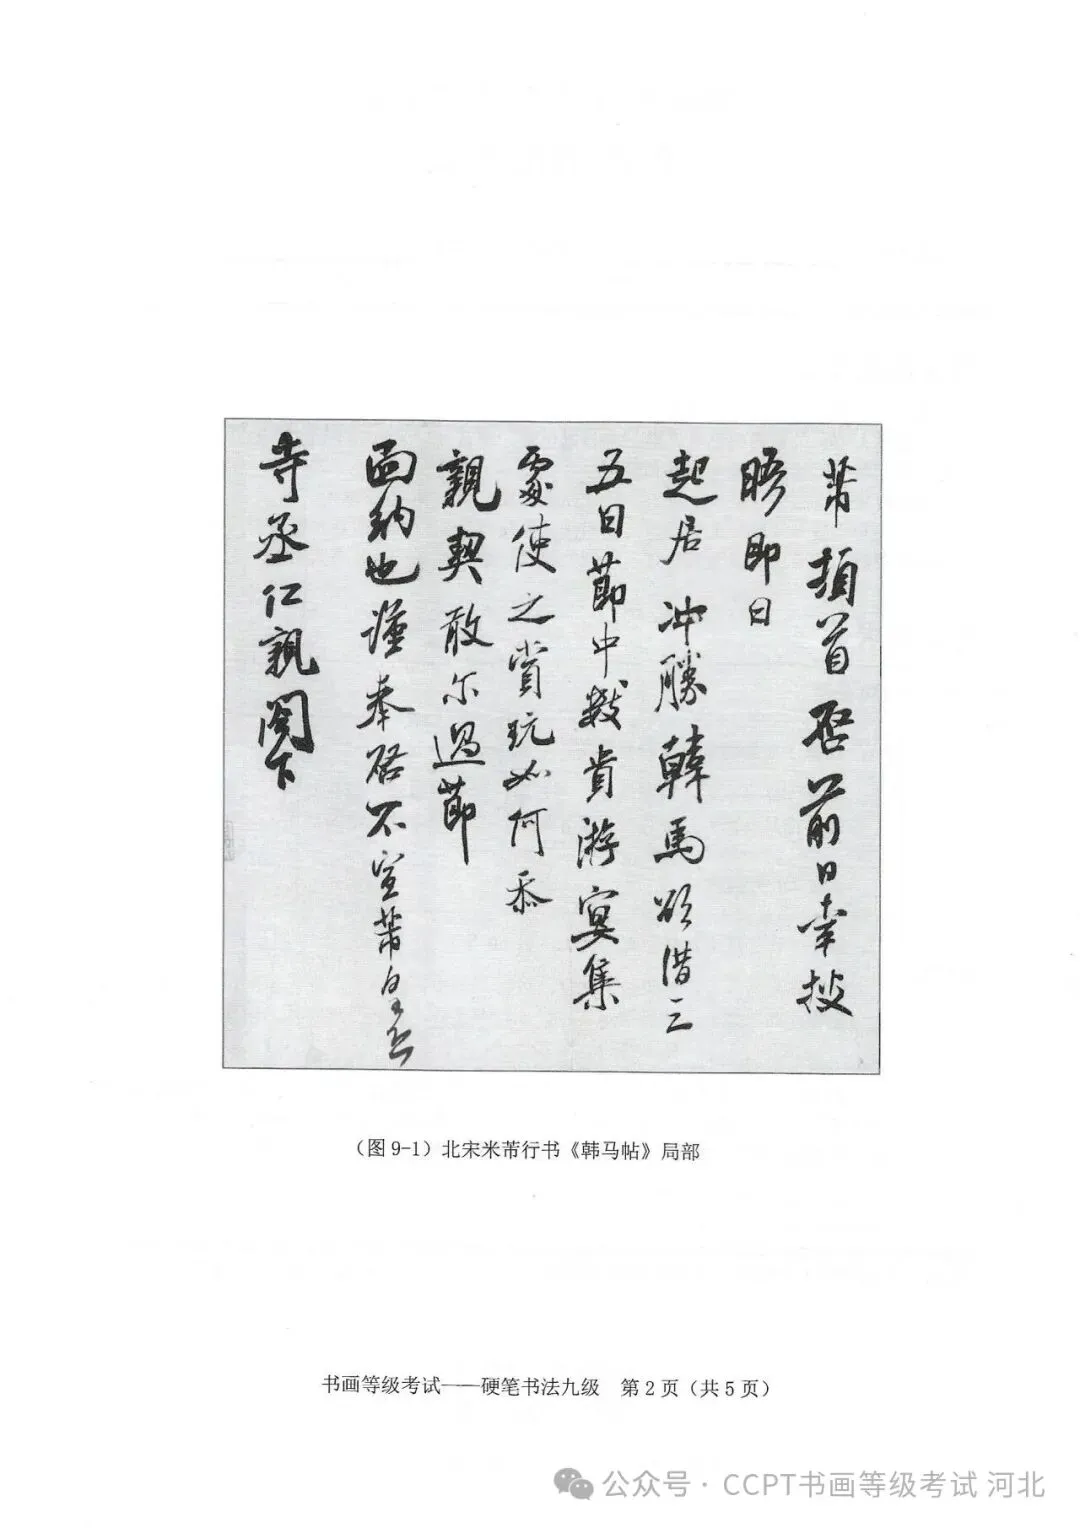 芾頓首啓前日幸披
晤即日
起居冲勝韓馬欲借三
五日節中數貴游宴集
處使之賞玩如何忝
親契敢尔過節
面納也謹奉啓不宣芾皇恐
寺丞仁親閣下
（图 9-1）北宋米芾行书《韩马帖》局部
书画等级考试——硬笔书法九级 第 2 页（共 5 页）
公众号·CCPT书画等级考试 河北